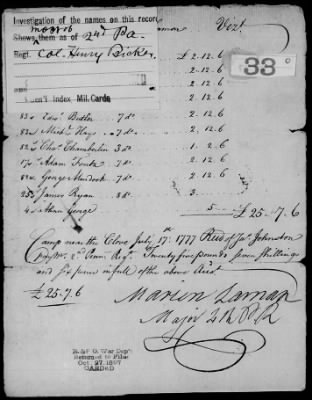 Investigation of the names on this record
mozrob
Shows them as of 2nd Pa.
Regt. Col. Henry Bicker
Gen'l Index Mil. Cards
33
£ 2.12.6
2.12.6
2.12.6
2.12.6
Edwd Butler 7 do 2.12.6
Michl Hays 7 do 2.12.6
Chas Chamberlin 3 do 1.2.6
Adam 7 do 2.12.6
George Murdock 7 do 2.12.6
James Ryan
Adam George 5 £25.7.6
Camp near the Clove July 17th 1777 Recd of Jas Johnston
PayMr 2d Penn Regt Twenty five pounds Seven Shillings
and Six pence in full of the above Acct
£ 25.7.6
Marien Lamar
Major 4th P R
R. & P. O. War Dep't
Returned to Files
Oct. 27, 1897
CARDED